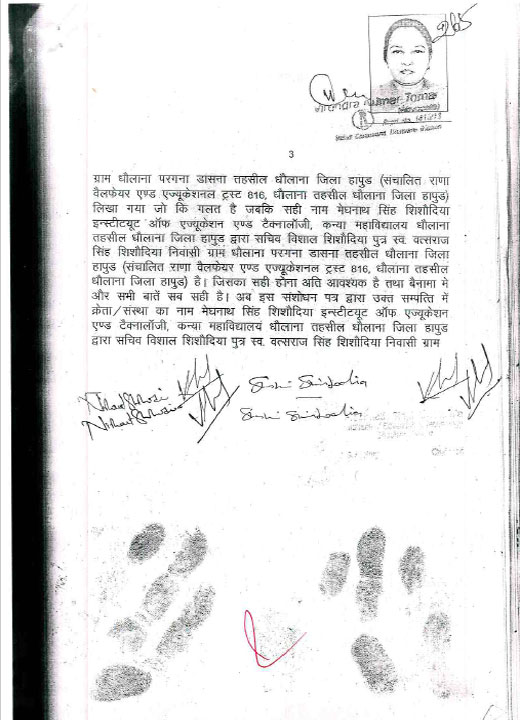 265
Virendra Kumar Tomar
3
ग्राम धौलाना परगना डासना तहसील धौलाना जिला हापुड (संचालित राणा
वैलफेयर एण्ड एज्यूकेशनल ट्रस्ट 816, धौलाना तहसील धौलाना जिला हापुड)
लिखा गया जो कि गलत है जबकि सही नाम मेघनाथ सिंह शिशौदिया
इन्स्टीटयूट ऑफ एज्यूकेशन एण्ड टैक्नालॉजी, कन्या महाविद्यालय धौलाना
तहसील धौलाना जिला हापुड द्वारा सचिव विशाल शिशौदिया पुत्र स्व. वत्सराज
सिंह शिशौदिया निवासी ग्राम धौलाना परगना डासना तहसील धौलाना जिला
हापुड (संचालित राणा वैलफेयर एण्ड एज्यूकेशनल ट्रस्ट 816, धौलाना तहसील
धौलाना जिला हापुड) है। जिसका सही होना अति आवश्यक है तथा बैनामा मे
और सभी बातें सब सही है। अब इस संशोधन पत्र द्वारा उक्त सम्पत्ति में
क्रेता/संस्था का नाम मेघनाथ सिंह शिशौदिया इन्स्टीटयूट ऑफ एज्यूकेशन
एण्ड टैक्नालॉजी, कन्या महाविद्यालय धौलाना तहसील धौलाना जिला हापुड
द्वारा सचिव विशाल शिशौदिया पुत्र स्व. वत्सराज सिंह शिशौदिया निवासी ग्राम